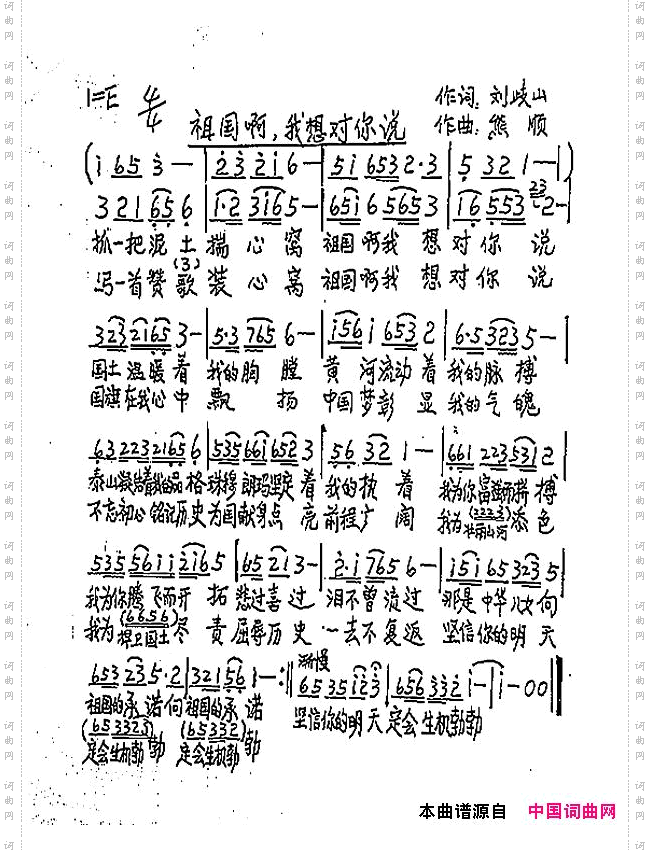 1=E 4/4
祖国啊,我想对你说
作词:刘岐山
作曲:熊 顺
(i 65 3 — | 2 3 2 i 6 — | 5 i 653 2·3 | 5 32 1 — |)
3 21 65 6 | i·2 3i6 5 — | 65i 6 565 3 | i6 553 23 2 — |
抓一把泥土揣心窝 祖国啊我想对你说
(3)
写一首赞歌装心窝 祖国啊我想对你说
323 2165 3 — | 5·3 765 6 — | i56 i 653 2 | 6·5 323 5 — |
国土温暖着 我的胸膛 黄河流动着 我的脉搏
国旗在我心中飘扬 中国梦彰显我的气魄
63 223 2165 6 | 535 661 652 3 | 56 32 1 — | 661 223 531 2 |
泰山凝结着我的品格 珠穆朗玛坚定着 我的执着 我为你富强而拼搏
不忘初心铭记历史 为国献身点亮 前程广阔 我为 添色
(2223)
壮丽山河
535 561 i 2i6 5 | 65 21 3 — | 2·i 765 6 — | i5i 65 323 5 |
我为你腾飞而开拓 悲过喜过 泪不曾流过 那是中华儿女向
(6656)
我为捍卫国土尽责 屈辱历史 一去不复返 坚信你的明天
653 23 5·2 | 321 56 1 — :|| 渐慢 65 35 i23 | 656 332 i — | i — 00 ||
祖国的承诺 向祖国的承诺 坚信你的明天 定会生机勃勃
(653323) (65332)
定会生机勃勃 定会生机勃勃
本曲谱源自 中国词曲网
词曲网